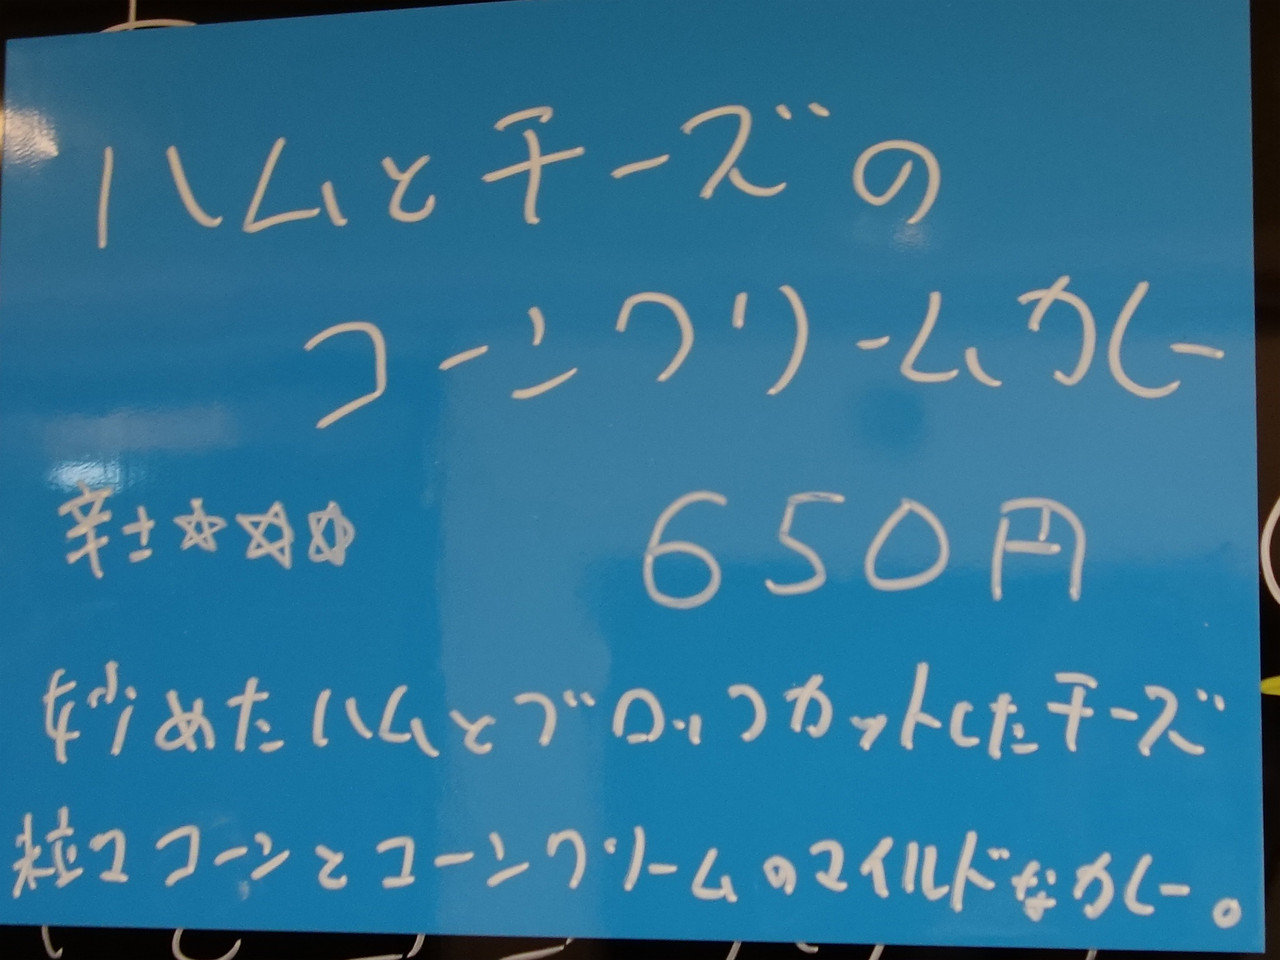 ハムとチーズの
コーンクリームカレー
辛さ☆☆☆ 650円
妙めたハムとブロックカットしたチーズ
粒マコーンとコーンクリームのマイルドなカレー。